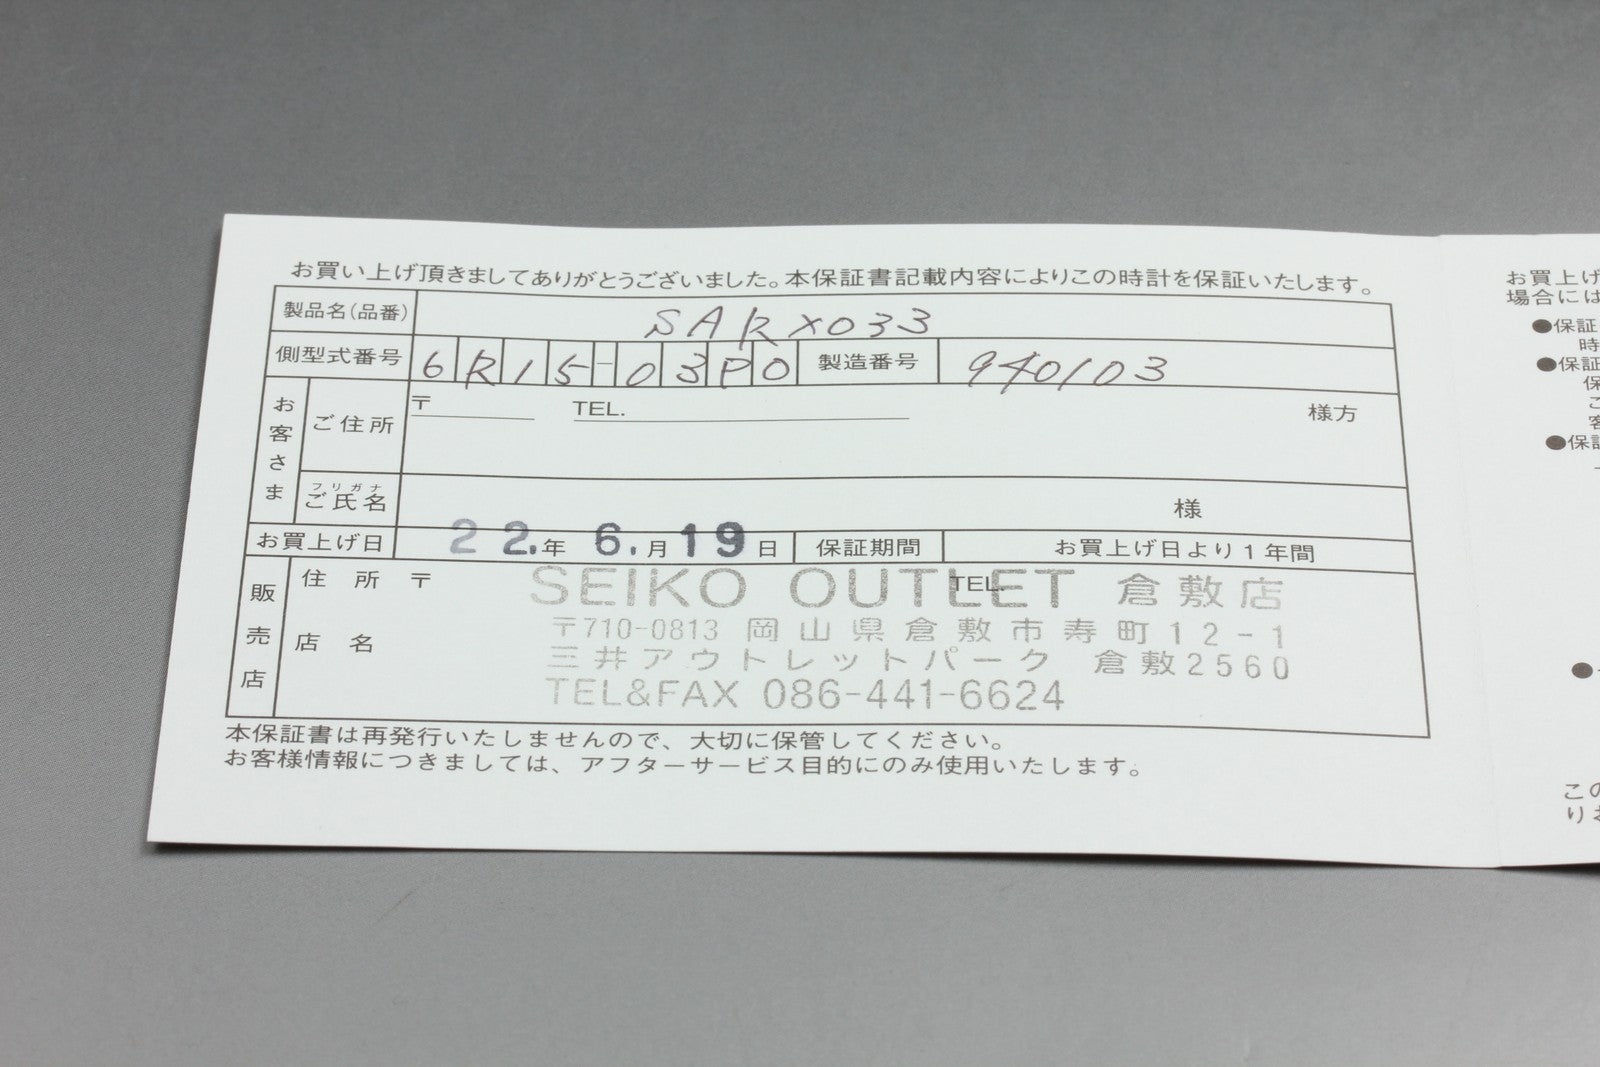 お買い上げ頂きましてありがとうございました。本保証書記載内容によりこの時計を保証いたします。
製品名(品番) SARX033
側型式番号 6R15-03P0 製造番号 940103
お客さま
ご住所 〒 TEL. 様方
フリガナ
ご氏名 様
お買上げ日 22.年 6.月 19日 保証期間 お買上げ日より1年間
販売店
住所 〒 TEL.
SEIKO OUTLET 倉敷店
〒710-0813 岡山県倉敷市寿町12-1
店名
三井アウトレットパーク 倉敷2560
TEL&FAX 086-441-6624
本保証書は再発行いたしませんので、大切に保管してください。
お客様情報につきましては、アフターサービス目的にのみ使用いたします。
お買上げ
場合には
●保証
時
●保証
保
こ
客
●保証
こ
り